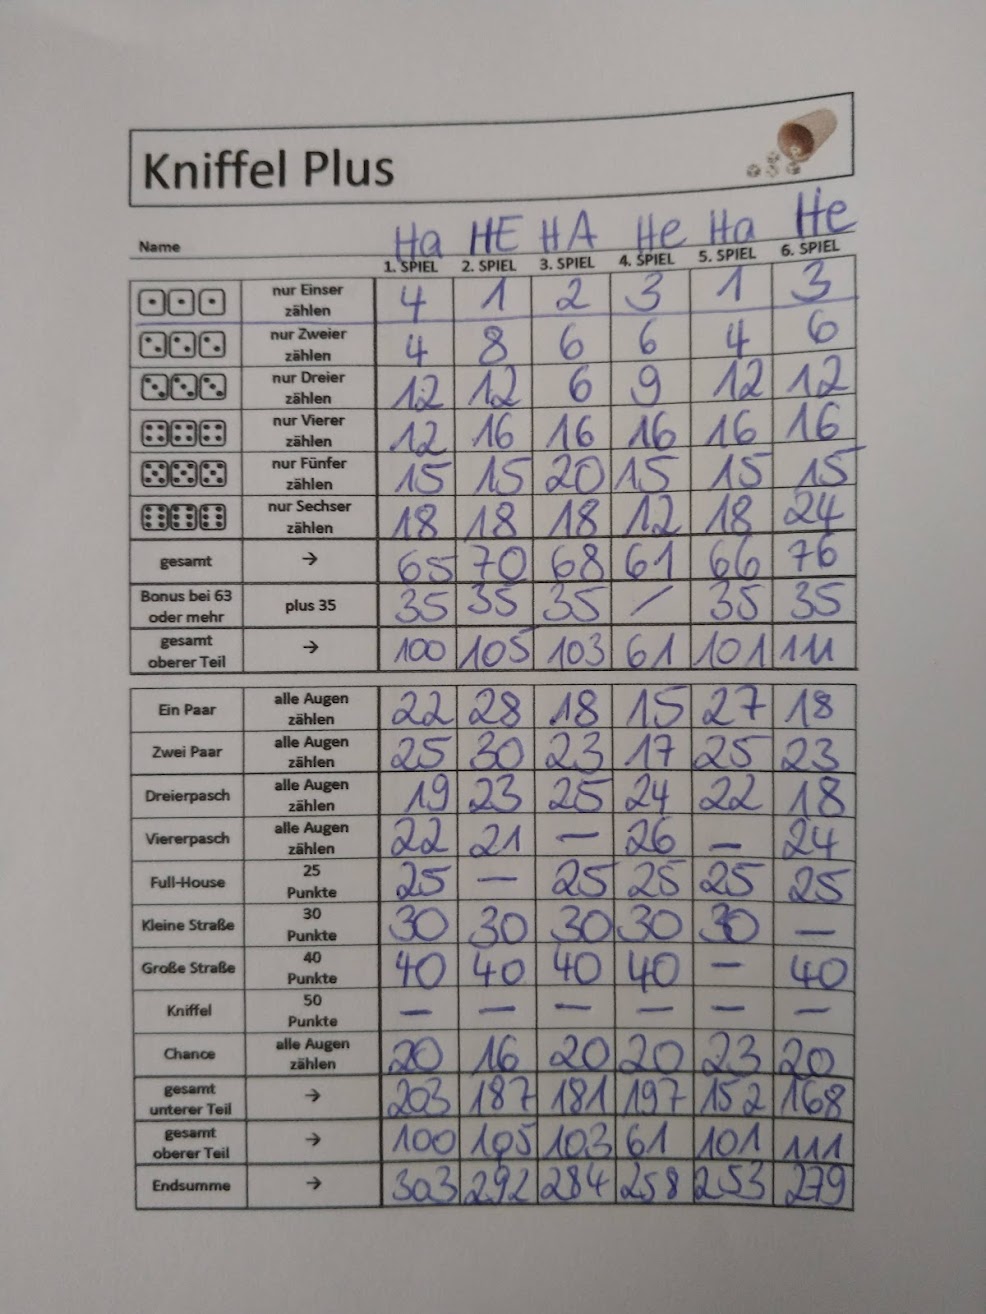 Kniffel Plus
Name Ha HE HA He Ha He
1. SPIEL 2. SPIEL 3. SPIEL 4. SPIEL 5. SPIEL 6. SPIEL
nur Einser zählen 4 1 2 3 1 3
nur Zweier zählen 4 8 6 6 4 6
nur Dreier zählen 12 12 6 9 12 12
nur Vierer zählen 12 16 16 16 16 16
nur Fünfer zählen 15 15 20 15 15 15
nur Sechser zählen 18 18 18 12 18 24
gesamt → 65 70 68 61 66 76
Bonus bei 63 oder mehr plus 35 35 35 35 / 35 35
gesamt oberer Teil → 100 105 103 61 101 111
Ein Paar alle Augen zählen 22 28 18 15 27 18
Zwei Paar alle Augen zählen 25 30 23 17 25 23
Dreierpasch alle Augen zählen 19 23 25 24 22 18
Viererpasch alle Augen zählen 22 21 — 26 — 24
Full-House 25 Punkte 25 — 25 25 25 25
Kleine Straße 30 Punkte 30 30 30 30 30 —
Große Straße 40 Punkte 40 40 40 40 — 40
Kniffel 50 Punkte — — — — — —
Chance alle Augen zählen 20 16 20 20 23 20
gesamt unterer Teil → 203 187 181 197 152 168
gesamt oberer Teil → 100 105 103 61 101 111
Endsumme → 303 292 284 258 253 279